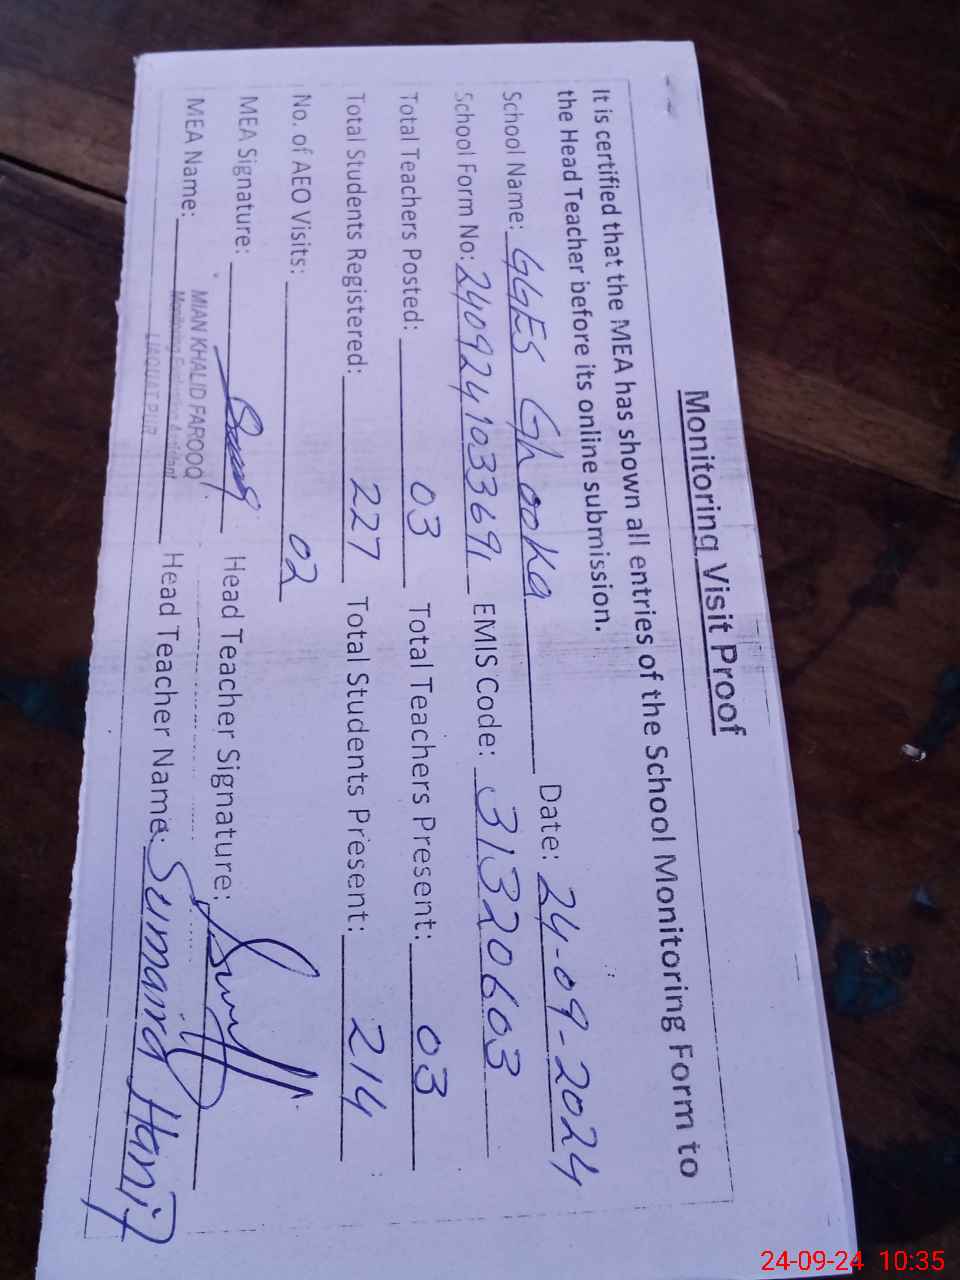 Monitoring Visit Proof
It is certified that the MEA has shown all entries of the School Monitoring Form to
the Head Teacher before its online submission.
School Name: GGES Ghooka Date: 24-09-2024
School Form No: 2409241033691 EMIS Code: 31320603
Total Teachers Posted: 03 Total Teachers Present: 03
Total Students Registered: 227 Total Students Present: 214
No. of AEO Visits: 02
MEA Signature: Head Teacher Signature:
MIAN KHALID FAROOQ
MEA Name: Monitoring Evaluation Assistant Head Teacher Name: Sumaira Hanif
LIAQUAT PUR
24-09-24 10:35